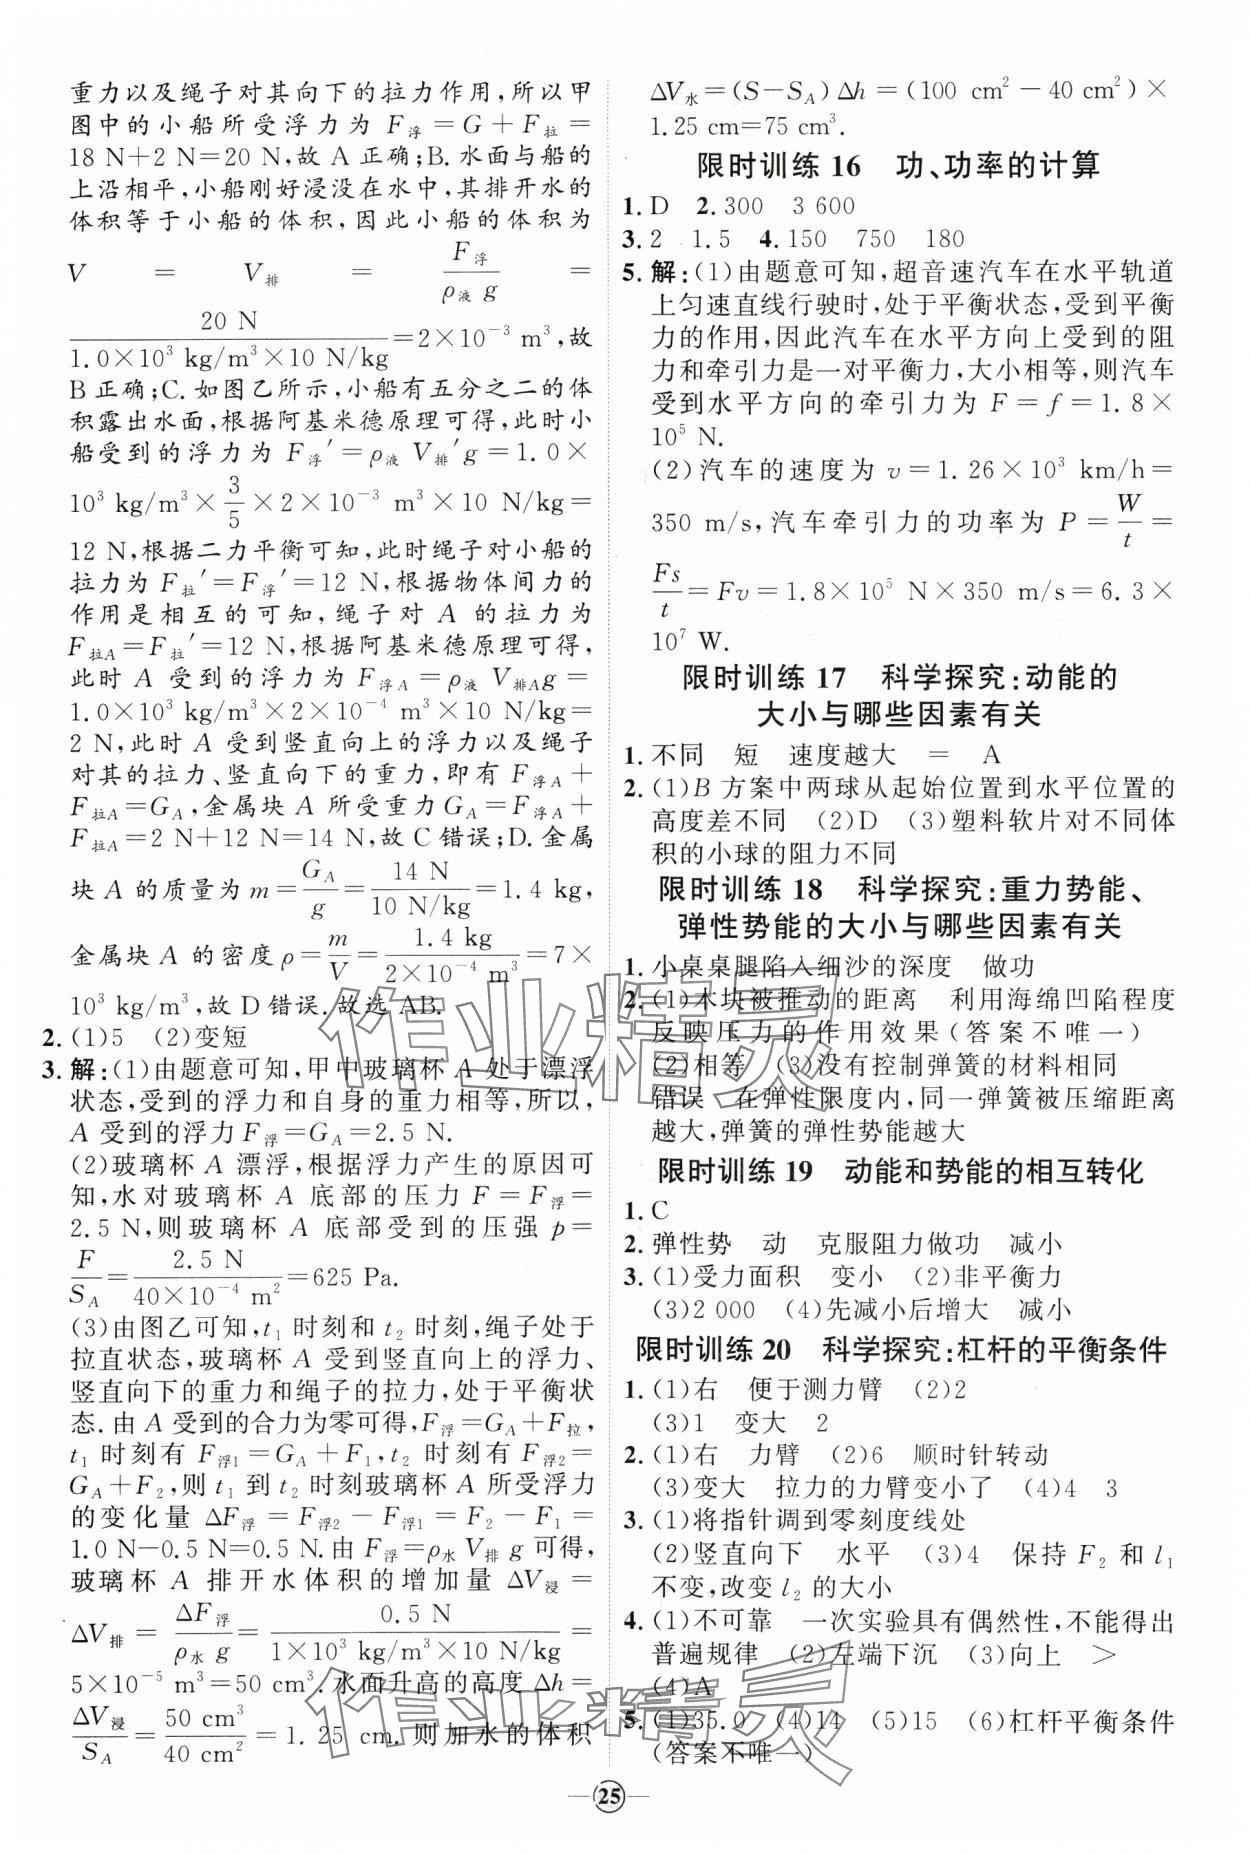 重力以及绳子对其向下的拉力作用,所以甲
图中的小船所受浮力为 F浮=G+F拉=
18 N+2 N=20 N,故 A 正确;B. 水面与船的
上沿相平,小船刚好浸没在水中,其排开水的
体积等于小船的体积,因此小船的体积为
V = V排 = F浮/(ρ液 g) =
20 N/(1.0×10³ kg/m³×10 N/kg)=2×10⁻³ m³,故
B 正确;C. 如图乙所示,小船有五分之二的体
积露出水面,根据阿基米德原理可得,此时小
船受到的浮力为 F浮′=ρ液 V排′g=1.0×
10³ kg/m³×3/5×2×10⁻³ m³×10 N/kg=
12 N,根据二力平衡可知,此时绳子对小船的
拉力为 F拉′=F浮′=12 N,根据物体间力的
作用是相互的可知,绳子对 A 的拉力为
F拉A=F拉′=12 N,根据阿基米德原理可得,
此时 A 受到的浮力为 F浮A=ρ液 V排A g=
1.0×10³ kg/m³×2×10⁻⁴ m³×10 N/kg=
2 N,此时 A 受到竖直向上的浮力以及绳子
对其的拉力、竖直向下的重力,即有 F浮A+
F拉A=G_A,金属块 A 所受重力 G_A=F浮A+
F拉A=2 N+12 N=14 N,故 C 错误;D. 金属
块 A 的质量为 m=G_A/g=14 N/(10 N/kg)=1.4 kg,
金属块 A 的密度 ρ=m/V=1.4 kg/(2×10⁻⁴ m³)=7×
10³ kg/m³,故 D 错误.故选 AB.
2. (1)5 (2)变短
3. 解:(1)由题意可知,甲中玻璃杯 A 处于漂浮
状态,受到的浮力和自身的重力相等,所以,
A 受到的浮力 F浮=G_A=2.5 N.
(2)玻璃杯 A 漂浮,根据浮力产生的原因可
知,水对玻璃杯 A 底部的压力 F=F浮=
2.5 N,则玻璃杯 A 底部受到的压强 p=
F/S_A=2.5 N/(40×10⁻⁴ m²)=625 Pa.
(3)由图乙可知,t₁ 时刻和 t₂ 时刻,绳子处于
拉直状态,玻璃杯 A 受到竖直向上的浮力、
竖直向下的重力和绳子的拉力,处于平衡状
态.由 A 受到的合力为零可得,F浮=G_A+F拉,
t₁ 时刻有 F浮1=G_A+F₁,t₂ 时刻有 F浮2=
G_A+F₂,则 t₁ 到 t₂ 时刻玻璃杯 A 所受浮力
的变化量 ΔF浮=F浮2-F浮1=F₂-F₁=
1.0 N-0.5 N=0.5 N.由 F浮=ρ水 V排 g 可得,
玻璃杯 A 排开水体积的增加量 ΔV浸=
ΔV排=ΔF浮/(ρ水 g)=0.5 N/(1×10³ kg/m³×10 N/kg)=
5×10⁻⁵ m³=50 cm³.水面升高的高度 Δh=
ΔV浸/S_A=50 cm³/40 cm²=1.25 cm.则加水的体积
ΔV水=(S-S_A)Δh=(100 cm²-40 cm²)×
1.25 cm=75 cm³.
限时训练 16 功、功率的计算
1. D 2. 300 3 600
3. 2 1.5 4. 150 750 180
5. 解:(1)由题意可知,超音速汽车在水平轨道
上匀速直线行驶时,处于平衡状态,受到平衡
力的作用,因此汽车在水平方向上受到的阻
力和牵引力是一对平衡力,大小相等,则汽车
受到水平方向的牵引力为 F=f=1.8×
10⁵ N.
(2)汽车的速度为 v=1.26×10³ km/h=
350 m/s,汽车牵引力的功率为 P=W/t=
Fs/t=Fv=1.8×10⁵ N×350 m/s=6.3×
10⁷ W.
限时训练 17 科学探究:动能的
大小与哪些因素有关
1. 不同 短 速度越大 = A
2. (1)B 方案中两球从起始位置到水平位置的
高度差不同 (2)D (3)塑料软片对不同体
积的小球的阻力不同
限时训练 18 科学探究:重力势能、
弹性势能的大小与哪些因素有关
1. 小桌桌腿陷入细沙的深度 做功
2. (1)木块被推动的距离 利用海绵凹陷程度
反映压力的作用效果(答案不唯一)
(2)相等 (3)没有控制弹簧的材料相同
错误 在弹性限度内,同一弹簧被压缩距离
越大,弹簧的弹性势能越大
限时训练 19 动能和势能的相互转化
1. C
2. 弹性势 动 克服阻力做功 减小
3. (1)受力面积 变小 (2)非平衡力
(3)2 000 (4)先减小后增大 减小
限时训练 20 科学探究:杠杆的平衡条件
1. (1)右 便于测力臂 (2)2
(3)1 变大 2
2. (1)右 力臂 (2)6 顺时针转动
(3)变大 拉力的力臂变小了 (4)4 3
3. (1)将指针调到零刻度线处
(2)竖直向下 水平 (3)4 保持 F₂ 和 l₁
不变,改变 l₂ 的大小
4. (1)不可靠 一次实验具有偶然性,不能得出
普遍规律 (2)左端下沉 (3)向上 >
(4)A
5. (1)35.0 (4)14 (5)15 (6)杠杆平衡条件
(答案不唯一)
25
作业精灵
作业精灵